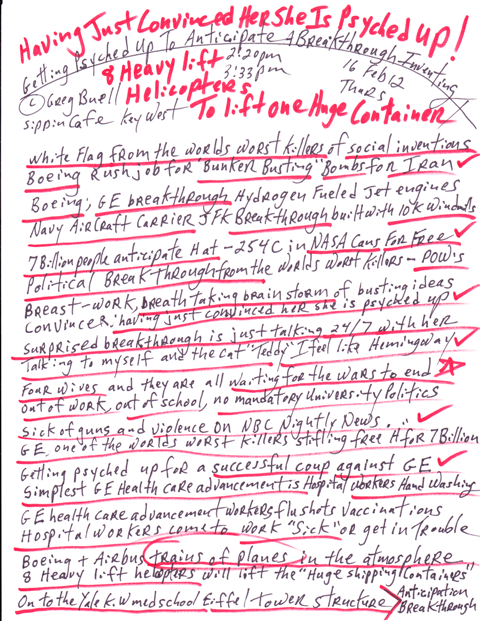 Having Just Convinced Her She Is Psyched Up!
Getting Psyched Up To Anticipate A Breakthrough Inventing
8 Heavy lift 2:20pm 16 Feb 12
© Greg Buell Helicopters 3:33pm Thurs
Sippin Cafe Key West To lift one Huge Container
White Flag from the worlds worst killers of social inventions
Boeing Rush job for "Bunker Busting" Bombs for Iran
Boeing; GE breakthrough Hydrogen Fueled Jet engines
Navy AirCraft Carrier JFK Breakthrough built with 10K Windmills
7 Billion people anticipate H at -254 C in NASA Cans For Free
Political Breakthrough from the worlds worst killers - POW's
Breast-work, breath taking brainstorm of busting ideas
Convincer: having just convinced her she is psyched up
Surprised breakthrough is just talking 24/7 with her
Talking to myself and the cat "Teddy" I feel like Hemingway
Four wives and they are all waiting for the wars to end
out of work, out of school, no mandatory University Politics
Sick of guns and violence on NBC Nightly News...
GE, one of the worlds worst killers still no free H for 7 Billion
Getting psyched up for a successful coup against GE.
Simplest GE Health care advancement is Hospital workers Hand Washing
GE health care advancement workers flu shots vaccinations
Hospital workers come to work "Sick" or get in trouble
Boeing + Airbus trains of planes in the atmosphere
8 Heavy lift helicopters will lift the "Huge shipping containers"
On to the Yale K.W med school Eiffel tower structure Anticipation
Breakthrough